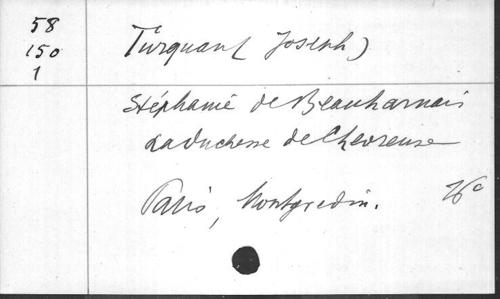 58
150
1
Turquan (Joseph)
Stéphanie de Beauharnais
La duchesse de Chevreuse
Paris, Montgredien.